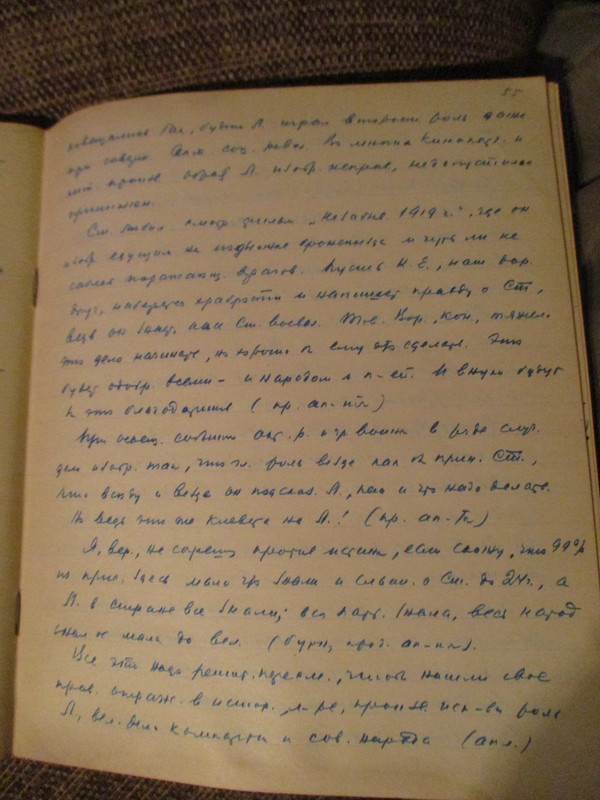 55
освещались так, будто Л. играл второст. роль даже
при соверш. Окт. соц. рев. Во многих кинокарт. и
лит. произв. образ Л. изобр. неправ., недопустимо
принижен.
Ст. любил смотр. фильм "Незабыв. 1919 г.", где он
изобр. едущим на подножке бронепоезда и чуть ли не
саблей поражающ. врагов. Пусть К. Е., наш дор.
друг, наберется храбрости и напишет правду о Ст.,
ведь он знает, как Ст. воевал. Тов. Вор., кон., тяжело
это дело начинать, но хорошо бы ему это сделать. Это
будет одобр. всеми - и народом и п-ей. И внуки будут
за это благодарить (пр. ап-ты)
При освещ. событий окт. р. и гр. войны в ряде случ.
дело изобр. так, что гл. роль везде как бы прин. Ст.,
что всюду и везде он подсказ. Л., как и что надо делать.
Но ведь это же клевета на Л.! (пр. ап-ты)
Я, вер., не согрешу против истины, если скажу, что 99%
из прис. здесь мало что знали и слыш. о Ст. до 24 г., а
Л. в стране все знали; вся парт. знала, весь народ
знал от мала до вел. (бурн., прод. ап-ты).
Все это надо решит. пересм., чтобы нашли свое
прав. отраж. в истор., л-ре, произв. иск-ва роль
Л., вел. дела компартии и сов. народа (апл.)